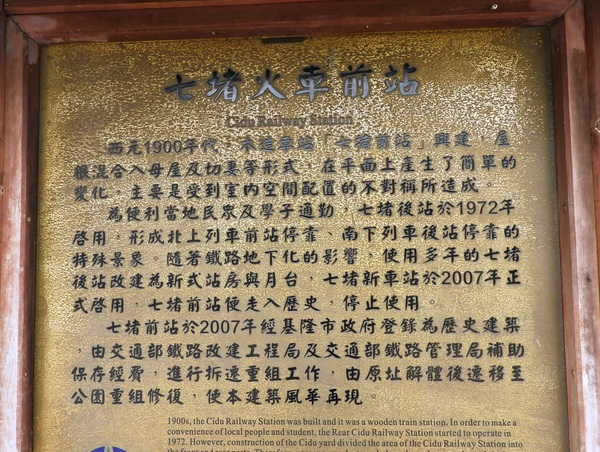 七堵火車前站
Cidu Railway Station
西元1900年代，木造車站「七堵前站」興建，屋
根混合入母屋及切妻等形式，在平面上產生了簡單的
變化，主要是受到室內空間配置的不對稱所造成。
為便利當地民眾及學子通勤，七堵後站於1972年
啓用，形成北上列車前站停靠、南下列車後站停靠的
特殊景象。隨著鐵路地下化的影響，使用多年的七堵
後站改建為新式站房與月台，七堵新車站於2007年正
式啓用，七堵前站便走入歷史，停止使用。
七堵前站於2007年經基隆市政府登錄為歷史建築
，由交通部鐵路改建工程局及交通部鐵路管理局補助
保存經費，進行拆遷重組工作，由原址解體後遷移至
公園重組修復，使本建築風華再現。
1900s, the Cidu Railway Station was built and it was a wooden train station. In order to make a
convenience of local people and student, the Rear Cidu Railway Station started to operate in
1972. However, construction of the Cidu yard divided the area of the Cidu Railway Station into